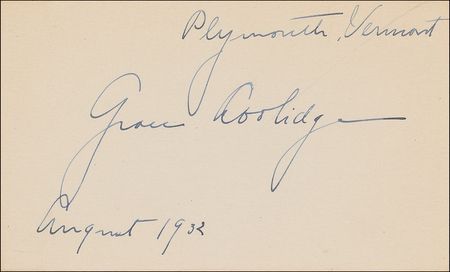 Plymouth, Vermont
Grace Coolidge
August 1932